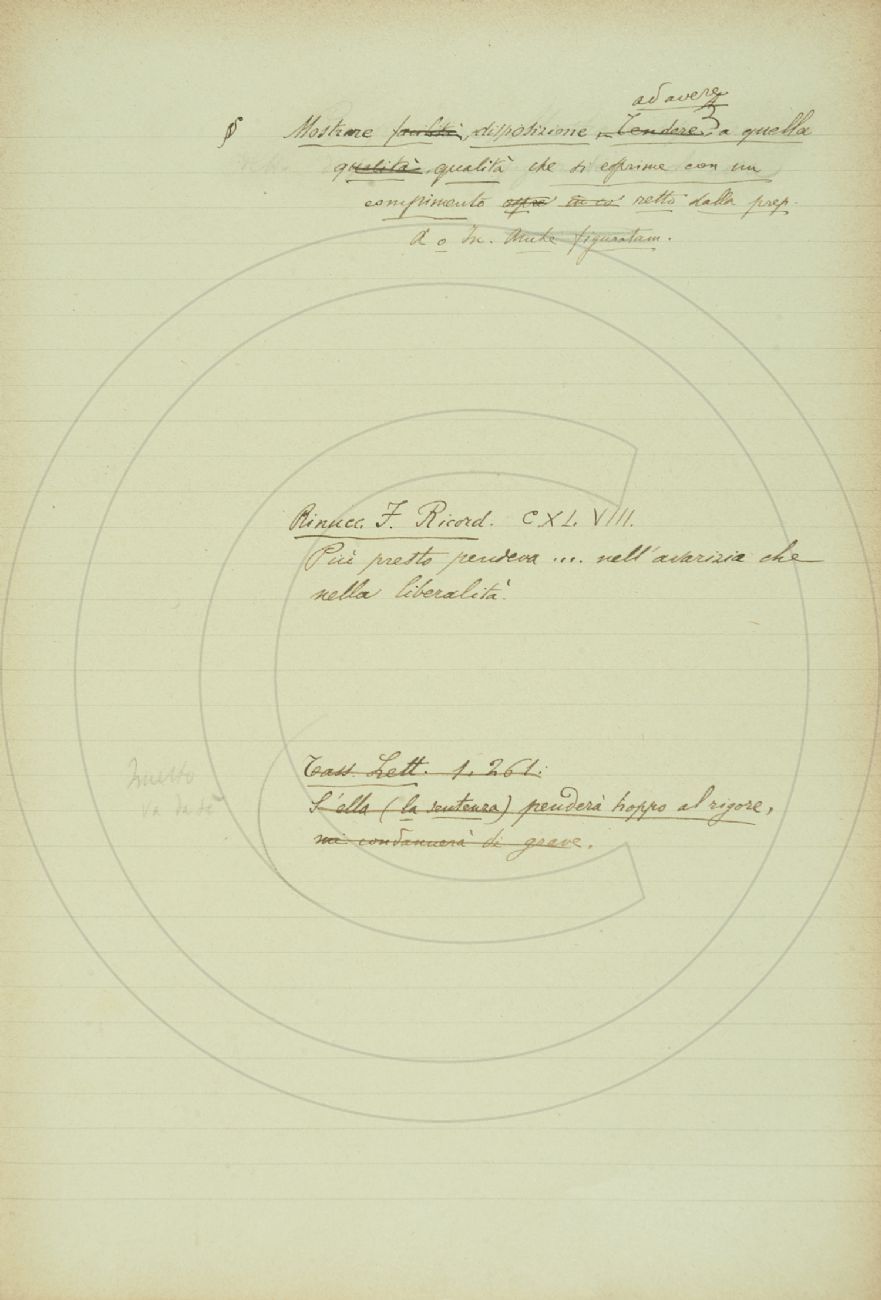 ad avere
§ Mostrare facilità, disposizione, Tendere a quella
qualità qualità che si esprime con un
compimento retto dalla prep.
A o In. Anche figuratam.
Rinucc. F. Ricord. CXLVIII.
Più presto pendeva ... nell'avarizia che
nella liberalità.
Tass. Lett. 1. 261:
S'ella (la sentenza) penderà troppo al rigore,
mi condannerà di grave.
Questo
va da sè